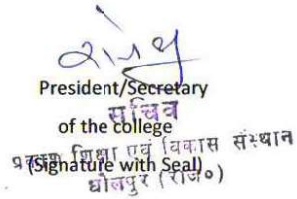 President/Secretary
सचिव
of the college
शिक्षा एवं विकास संस्थान
(Signature with Seal)
धौलपुर (राज०)